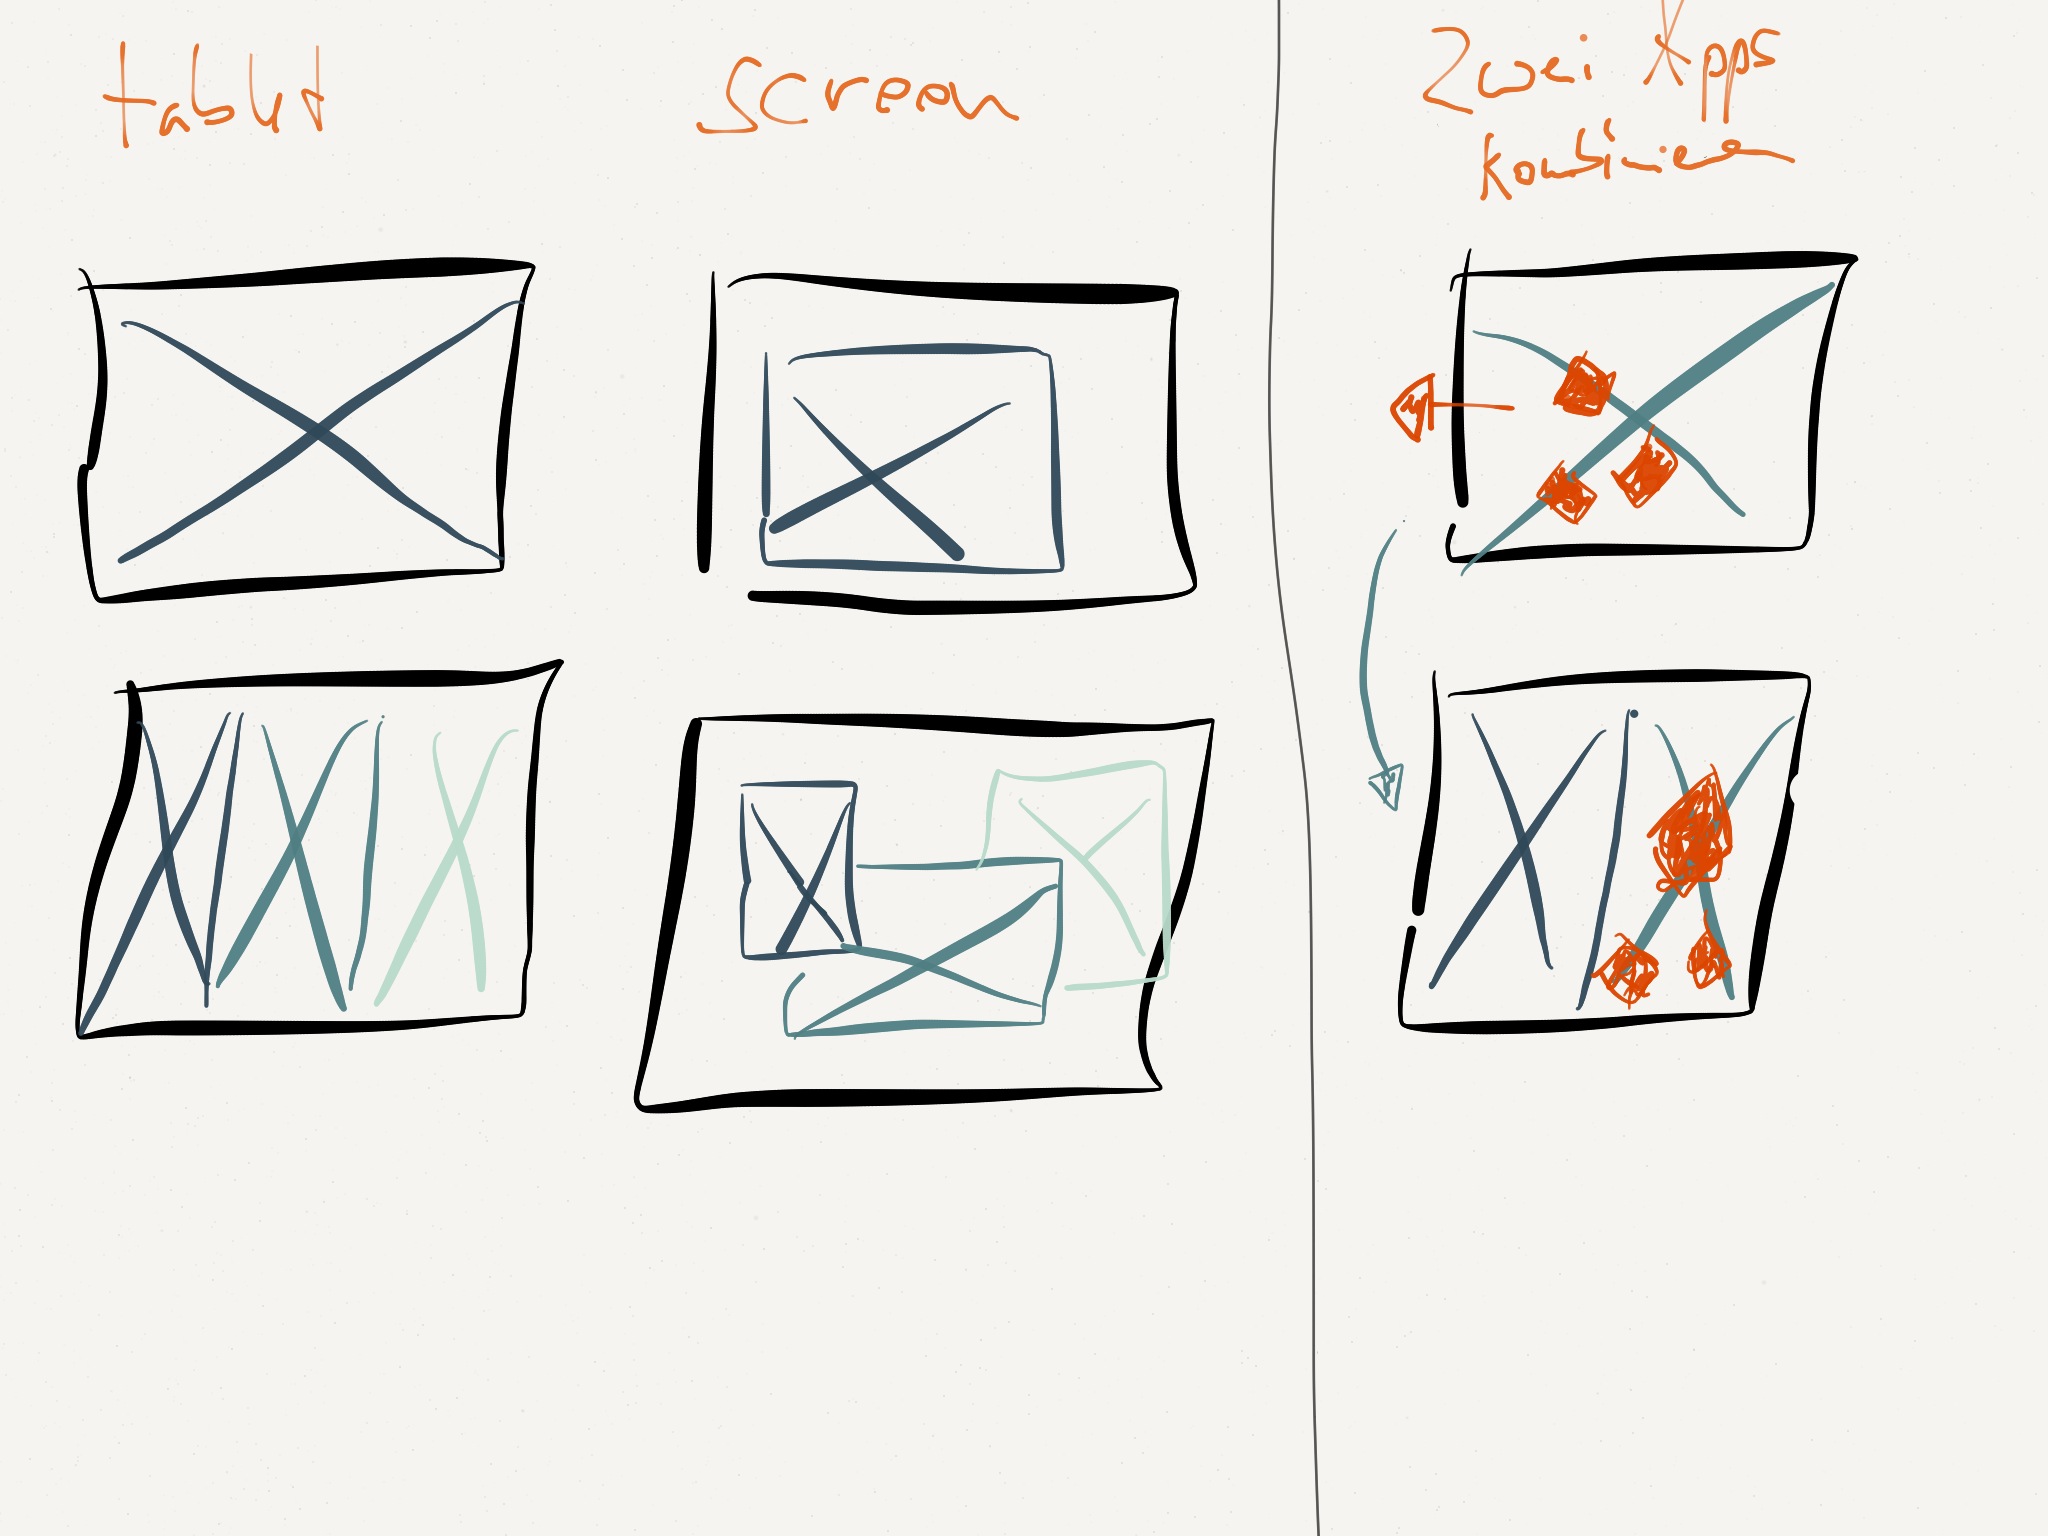 tablet
screen
Zwei Apps
kombinieren